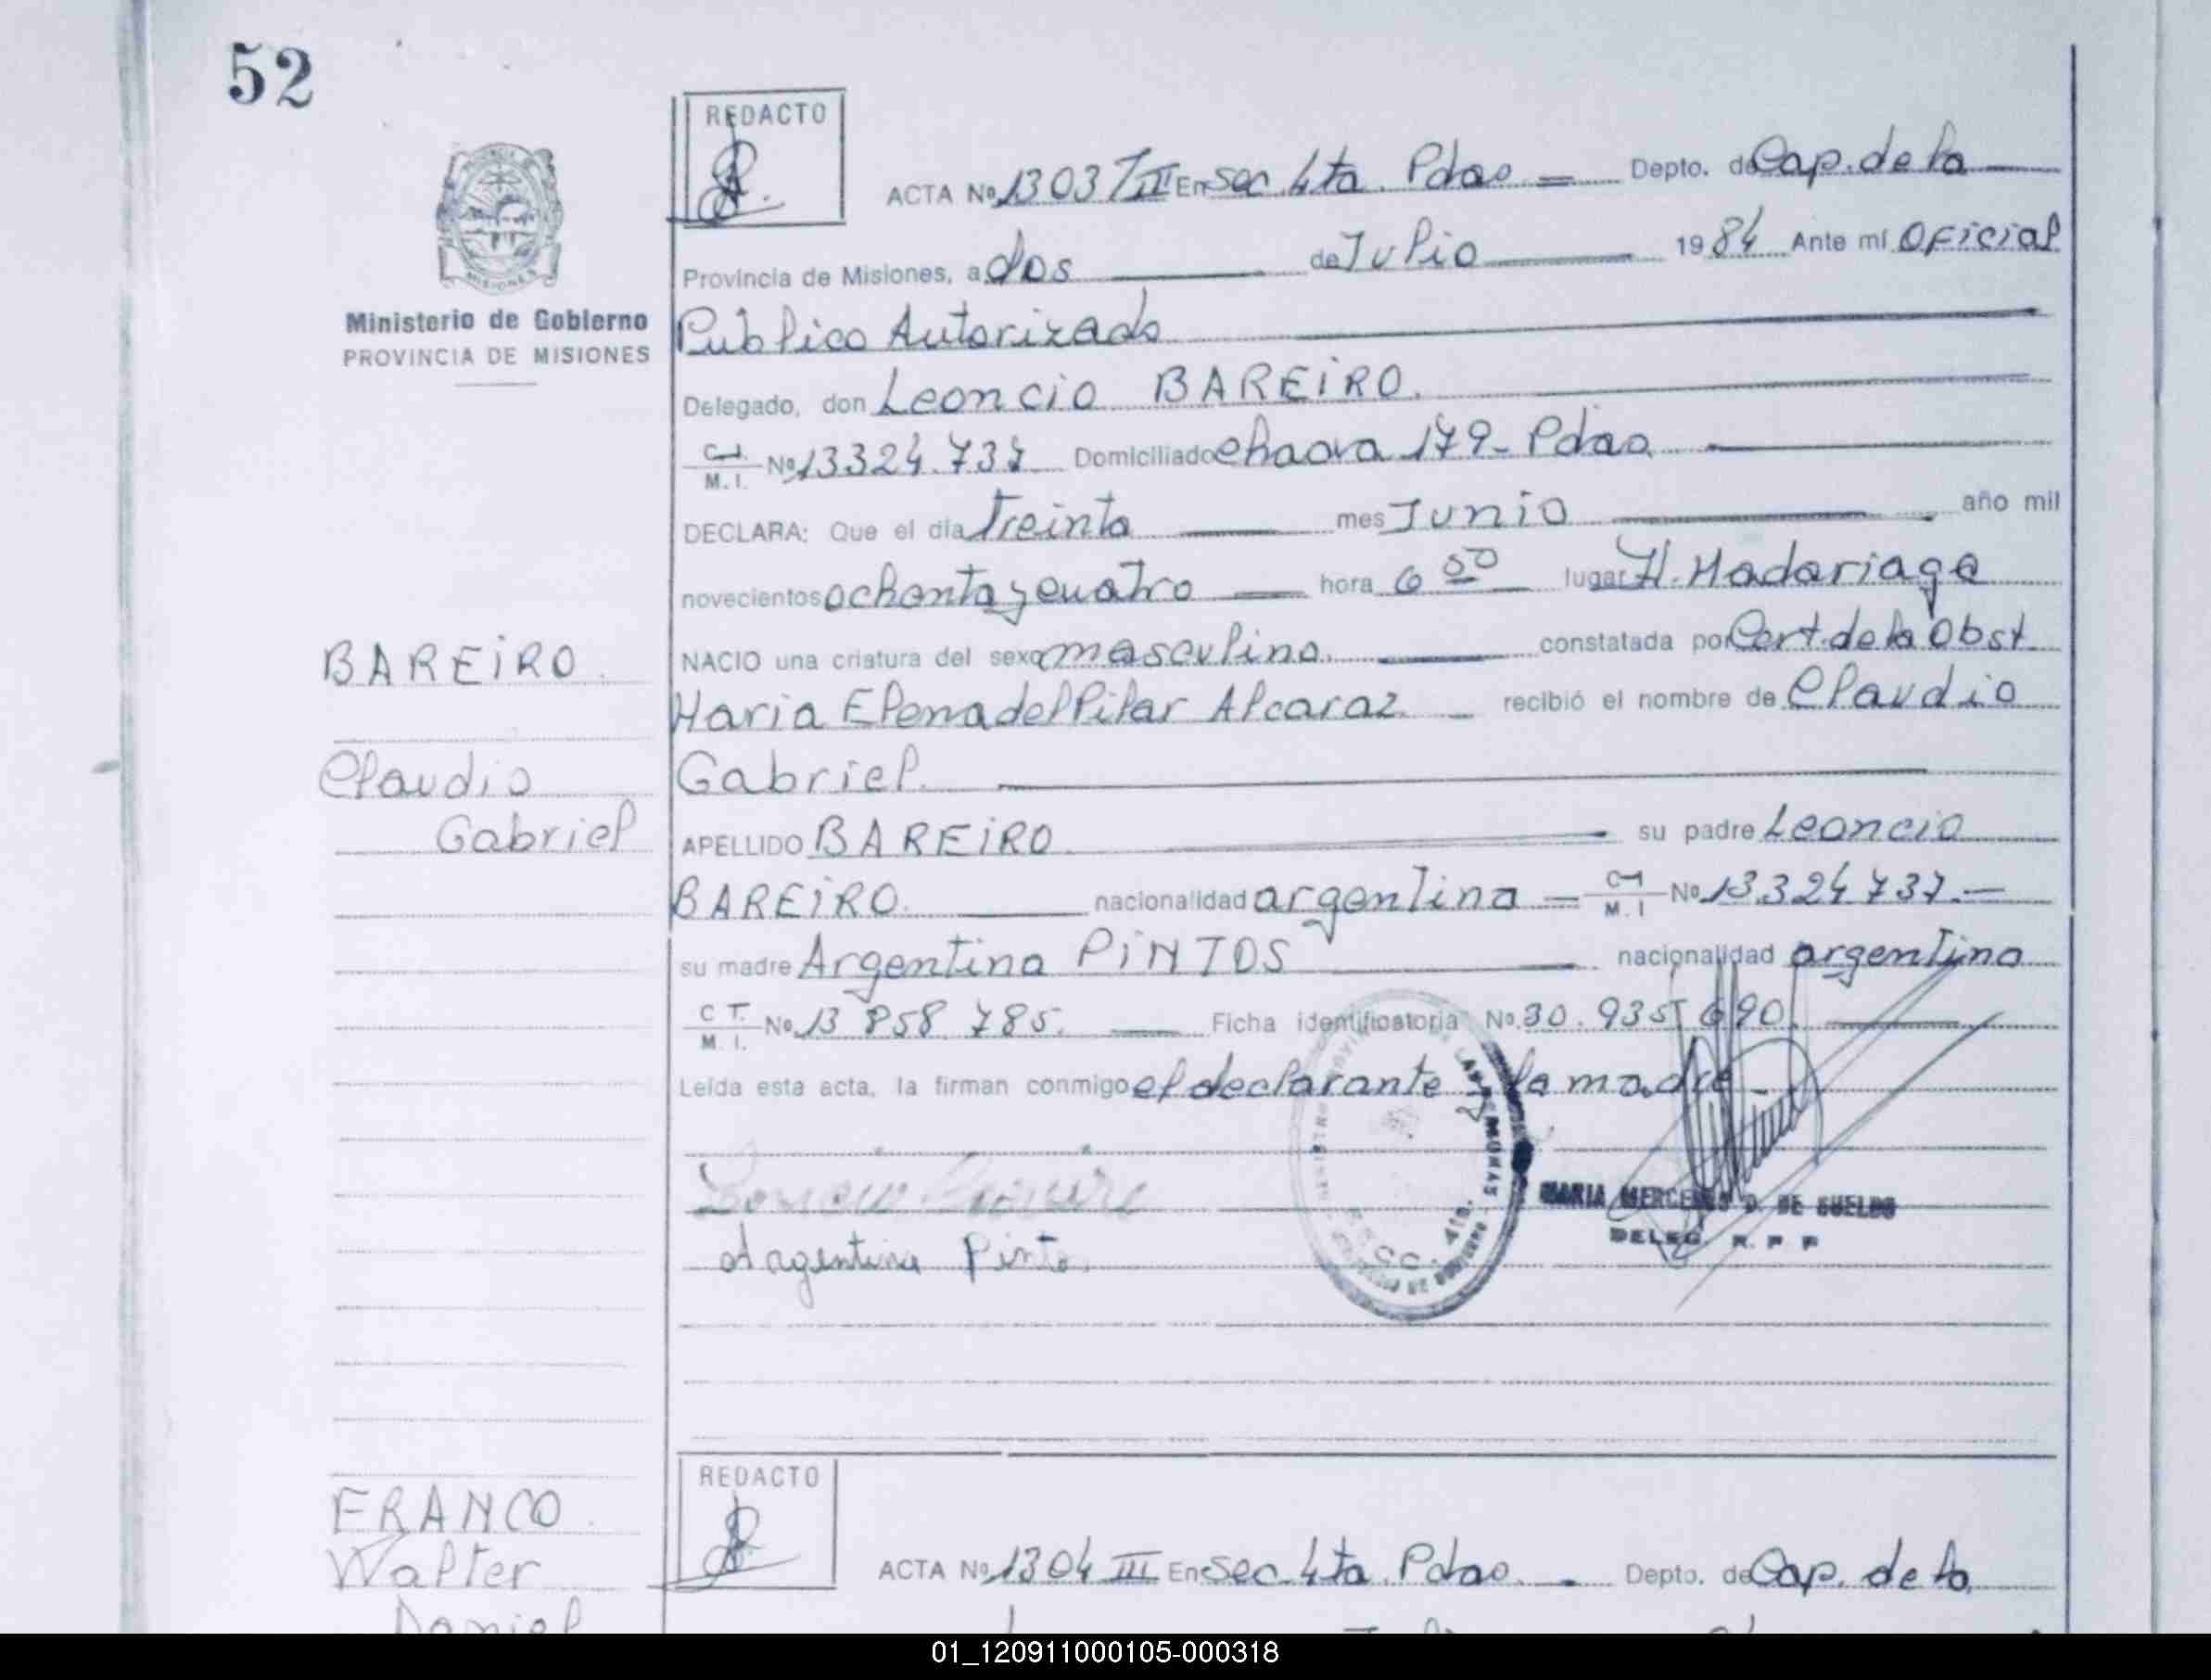 52
REDACTO
ACTA Nº 1303 III En sec 4ta. Pdas Depto. de Cap. de la
Provincia de Misiones, a dos de Julio 1984 Ante mí Oficial
Publico Autorizado
Ministerio de Gobierno
PROVINCIA DE MISIONES
Delegado, don Leoncio BAREIRO.
C.I. M.I. Nº 13324.737 Domiciliado chacra 179- Pdas
DECLARA: Que el día Treinta mes Junio año mil
novecientos ochenta y cuatro hora 6 50 lugar H. Madariaga
NACIO una criatura del sexo masculino. constatada por Cert. de la Obst
BAREIRO.
Maria Elena del Pilar Alcaraz recibió el nombre de Claudio
Claudio
Gabriel.
Gabriel
APELLIDO BAREIRO su padre Leoncio
BAREIRO. nacionalidad argentina C.I. M.I Nº 13.324 737.-
su madre Argentina PINTOS nacionalidad argentina
C I. M. I. Nº 13 858 785. Ficha identificatoria Nº 30.935 690
Leída esta acta, la firman conmigo el declarante y la madre
Argentina Pinto.
MARIA MERCEDES D. DE SUELDO
DELEG. R. P P
FRANCO.
REDACTO
Walter
ACTA Nº 1304 III En sec. 4ta. Pdas. Depto. de Cap. de la
Daniel
01_120911000105-000318